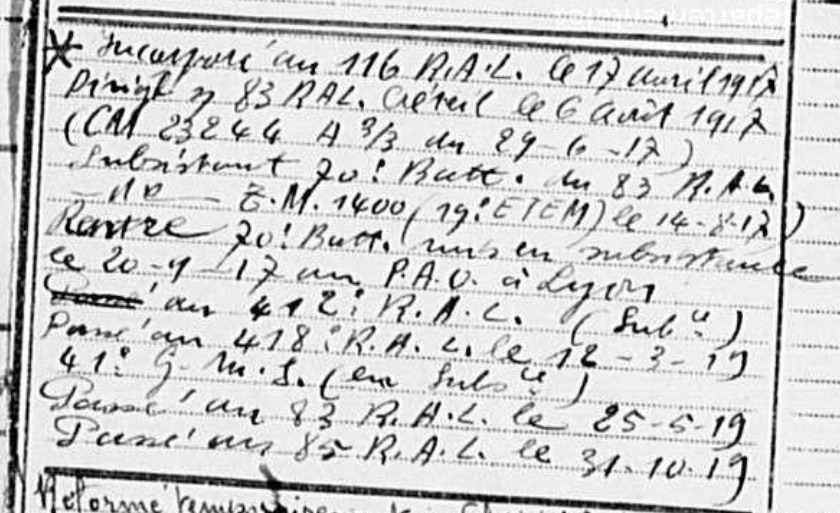 * Incorporé au 116 R.A.L. le 17 avril 1917
Dirigé 83 RAL. Créteil le 6 août 1917
(CM 23244 A 3/3 du 29-6-17)
Subsistant 70e Batt. du 83 R.A.L.
— do — T.M. 1400 (19e ETEM) le 14-8-17)
Rentré 70e Batt. mis en subsistance
le 20-9-17 au P.A.O. à Lyon
Passé au 412e R.A.L. (Subce)
Passé au 418e R.A.L. le 12-3-19
41e G.M.S. (en Subce)
Passé au 83 R.A.L. le 25-5-19
Passé au 85 R.A.L. le 31-10-19
Réformé temporaire